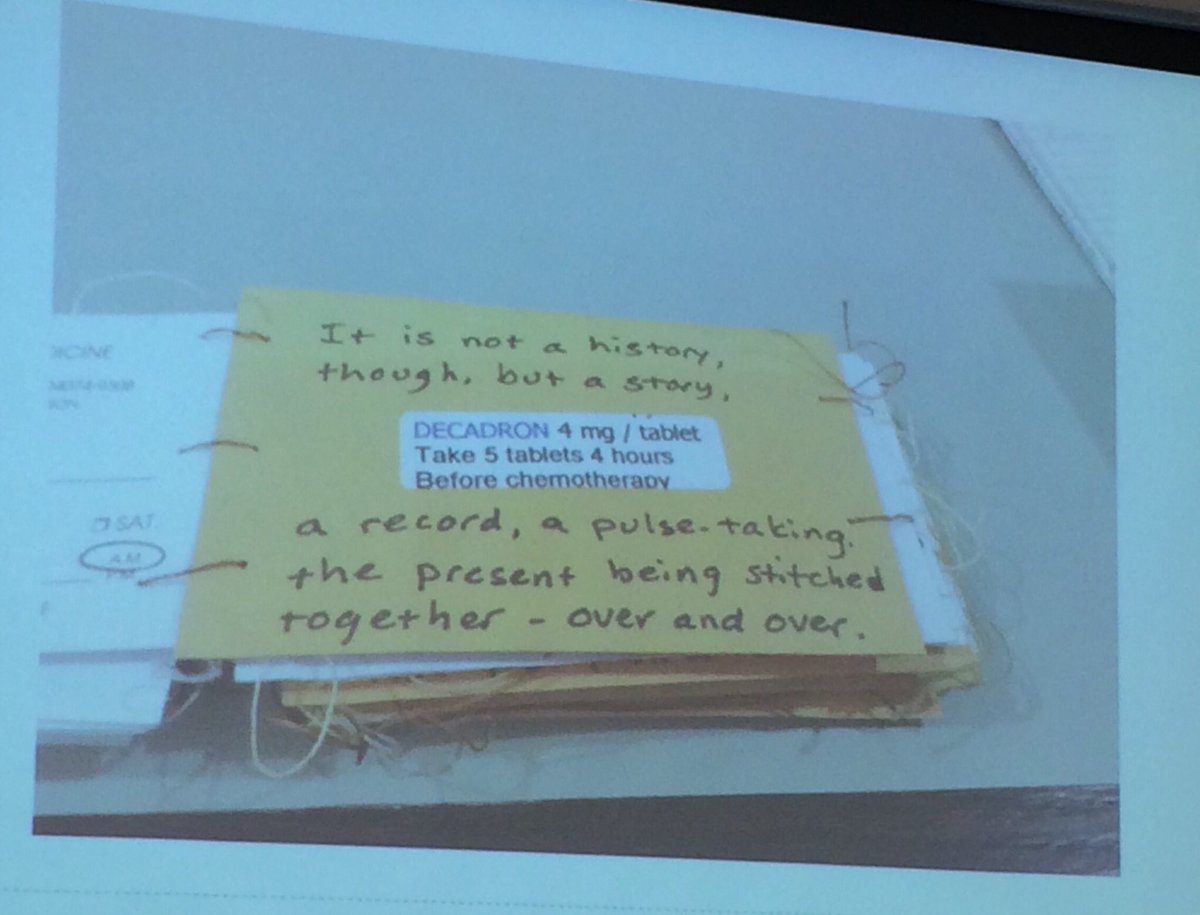 It is not a history,
though, but a story,
DECADRON 4 mg / tablet
Take 5 tablets 4 hours
Before chemotherapy
a record, a pulse-taking.
the present being stitched
together - over and over.
SAT
A.M.